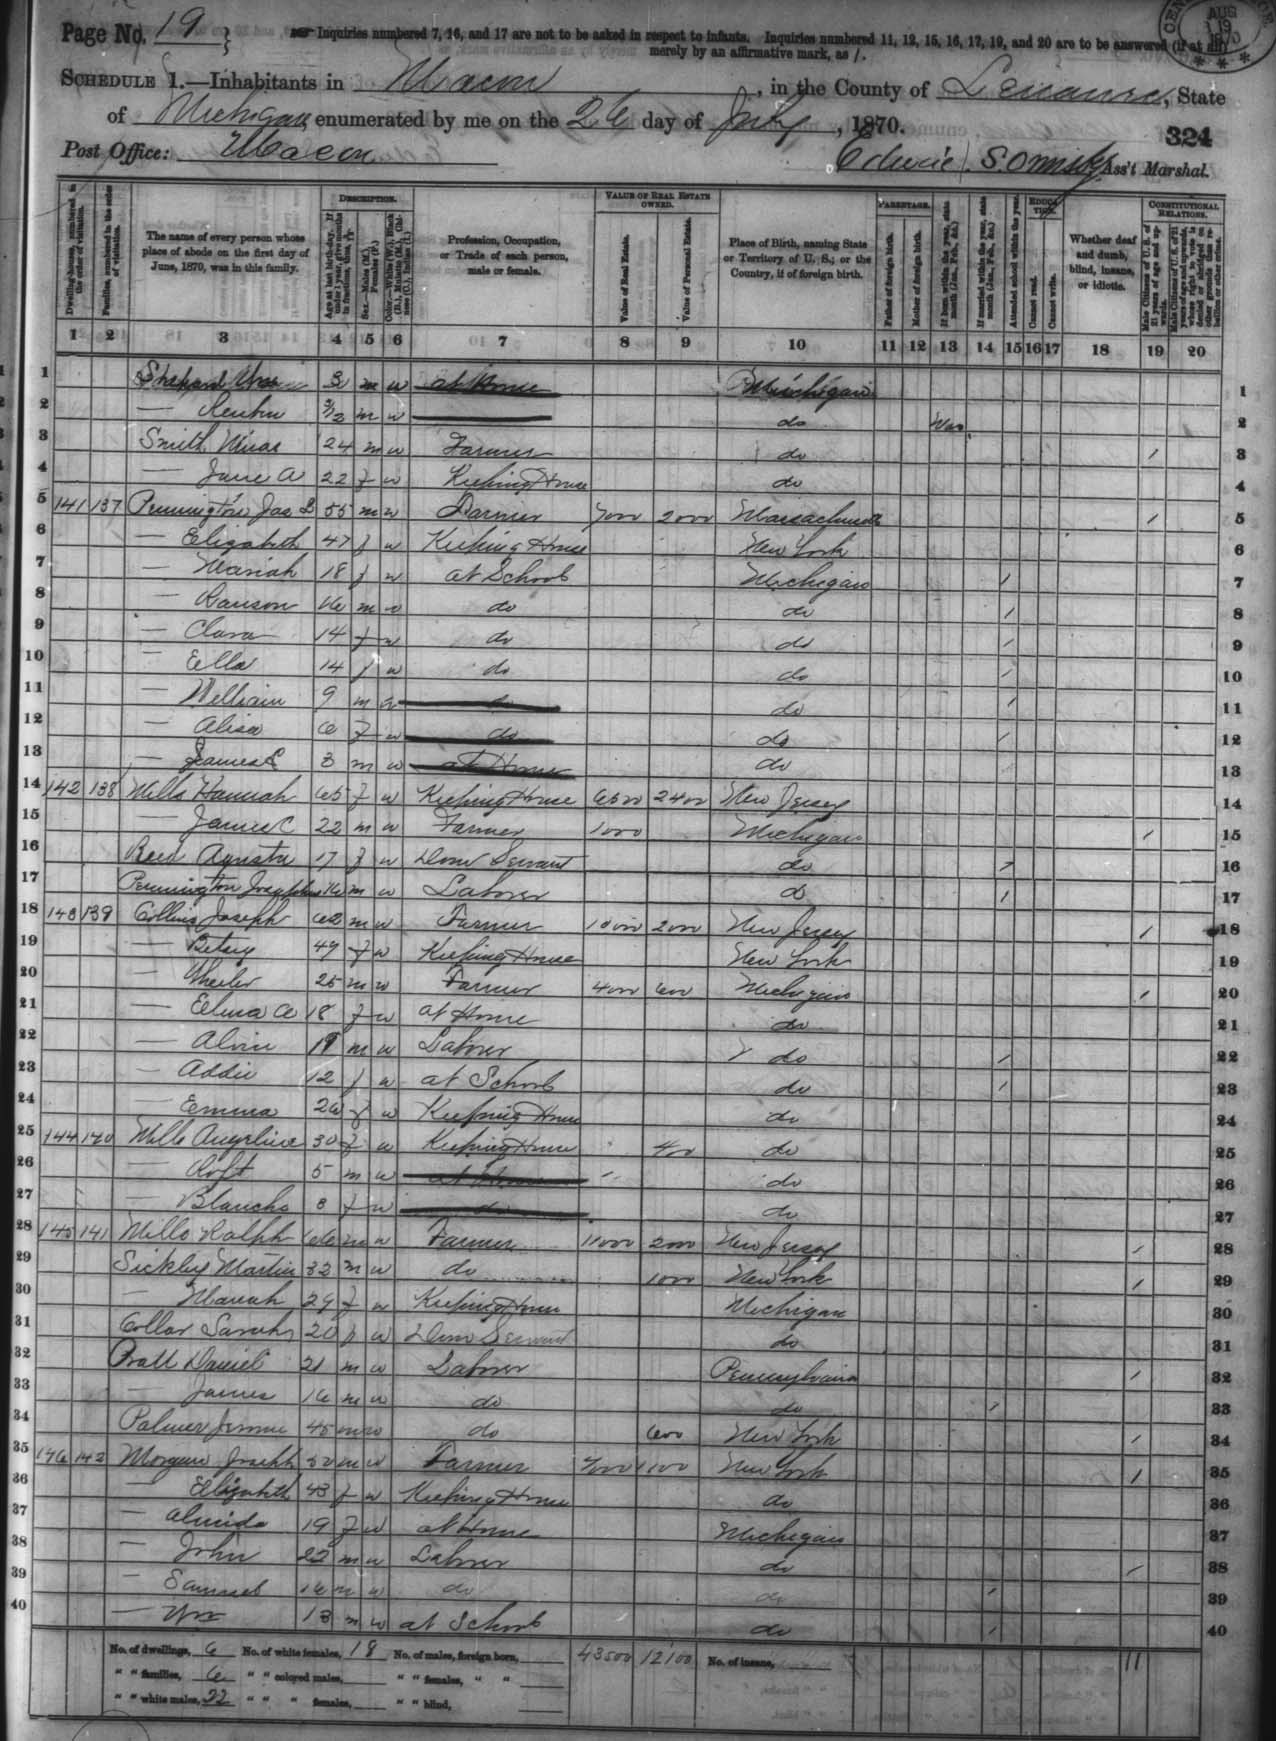 Page No. 19
Inquiries numbered 7, 16, and 17 are not to be asked in respect to infants. Inquiries numbered 11, 12, 15, 16, 17, 19, and 20 are to be answered (if at all) merely by an affirmative mark, as /.
AUG 19 1870
SCHEDULE 1.—Inhabitants in Macon, in the County of Lenawee, State
of Michigan, enumerated by me on the 26 day of July, 1870.
324
Post Office: Macon
Ass't Marshal.
Dwelling-houses, numbered in the order of visitation.
Families, numbered in the order of visitation.
The name of every person whose place of abode on the first day of June, 1870, was in this family.
DESCRIPTION.
Age at last birth-day. If under 1 year, give months in fractions, thus, 3/12
Sex.—Males (M.), Females (F.)
Color.—White (W.), Black (B.), Mulatto (M.), Chinese (C.), Indian (I.)
Profession, Occupation, or Trade of each person, male or female.
VALUE OF REAL ESTATE OWNED.
Value of Real Estate.
Value of Personal Estate.
Place of Birth, naming State or Territory of U. S.; or the Country, if of foreign birth.
PARENTAGE.
Father of foreign birth.
Mother of foreign birth.
If born within the year, state month (Jan., Feb., &c.)
If married within the year, state month (Jan., Feb., &c.)
EDUCATION.
Attended school within the year.
Cannot read.
Cannot write.
Whether deaf and dumb, blind, insane, or idiotic.
CONSTITUTIONAL RELATIONS.
Male Citizens of U. S. of 21 years of age and upwards.
Male Citizens of U. S. of 21 years of age and upwards, whose right to vote is denied or abridged on other grounds than rebellion or other crime.
1 2 3 4 5 6 7 8 9 10 11 12 13 14 15 16 17 18 19 20
1 3 m w at Home Michigan 1
2 — Reuben m w do 2
3 Smith 24 m w Farmer do / 3
4 — Jane A 22 f w Keeping House do 4
5 141 137 Pennington Jas B 55 m w Farmer 7000 2000 Massachusetts / 5
6 — Elizabeth 47 f w Keeping House New York 6
7 — Mariah 18 f w at School Michigan / 7
8 — Ranson 16 m w do do / 8
9 — Clara 14 f w do do / 9
10 — Ella 14 f w do do / 10
11 — William 9 m w do do / 11
12 — Alisa 6 f w do do / 12
13 — James 3 m w at Home do 13
14 142 138 Mills Hannah 65 f w Keeping House 6500 2400 New Jersey 14
15 — James C 22 m w Farmer 1000 Michigan / 15
16 Reed 17 f w Dom Servant do / 16
17 Pennington 16 m w Laborer do / 17
18 143 139 Collins Joseph 62 m w Farmer 10000 2000 New Jersey / 18
19 — Betsey 49 f w Keeping House New York 19
20 — Wheeler 25 m w Farmer 4000 600 Michigan / 20
21 — Elma A 18 f w at Home do 21
22 — Alvin m w Laborer do / 22
23 — Addie 12 f w at School do / 23
24 — Emma 26 f w Keeping House do 24
25 144 140 Mills Angeline 30 f w Keeping House 400 do 25
26 — 5 m w at Home do 26
27 — Blanche 3 f w do do 27
28 145 141 Mills Ralph 66 m w Farmer 11000 2000 New Jersey / 28
29 Sickley Martin 32 m w do 1000 New York / 29
30 — Mariah 29 f w Keeping House Michigan 30
31 Collar Sarah 20 f w Dom Servant do 31
32 Pratt Daniel 21 m w Laborer Pennsylvania / 32
33 — James 16 m w do do / 33
34 Palmer 45 m w do 600 New York / 34
35 146 142 Joseph 50 m w Farmer 1100 New York / 35
36 — Elizabeth 43 f w Keeping House do 36
37 — Almeda 19 f w at Home Michigan 37
38 — John 22 m w Laborer do / 38
39 — Samuel 16 m w do do / 39
40 — Wm 13 m w at School do / 40
No. of dwellings, 6 No. of white females, 18 No. of males, foreign born, 43500 12100 No. of insane, 11
" " families, 6 " " colored males, " " females, " "
" " white males, 22 " " " females, " " blind,